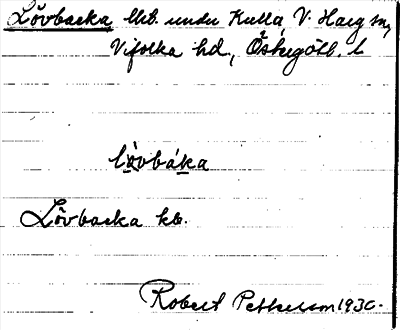 Lövbacka lht. under Kulla, V. Harg sn,
Vifolka hd, Östergötl. l
lövbáka
Lövbacka kb.
Robert Pettersson 1930.